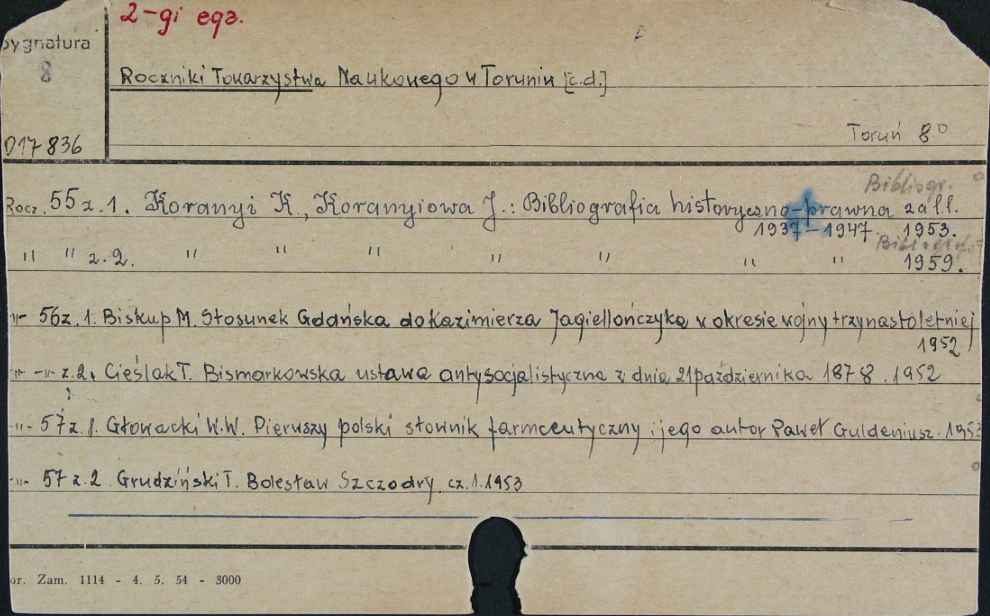 2-gi egz.
Sygnatura
8
Roczniki Towarzystwa Naukowego w Toruniu [c.d.]
017 836
Toruń 8°
Bibliogr.
Rocz. 55 z. 1. Koranyi K., Koranyiowa J.: Bibliografia historyczno-prawna za ll.
1937-1947. 1953.
" " z. 2. " " " " " " " 1959.
-"- 56 z. 1. Biskup M. Stosunek Gdańska do Kazimierza Jagiellończyka w okresie wojny trzynastoletniej
1952
-"- -"- z. 2. Cieślak T. Bismarkowska ustawa antysocjalistyczna z dnia 21 października 1878. 1952
-"- 57 z. 1. Głowacki W.W. Pierwszy polski słownik farmceutyczny i jego autor Paweł Guldeniusz. 1953
-"- 57 z. 2. Grudziński T. Bolesław Szczodry. cz. 1. 1953
or. Zam. 1114 - 4. 5. 54 - 3000